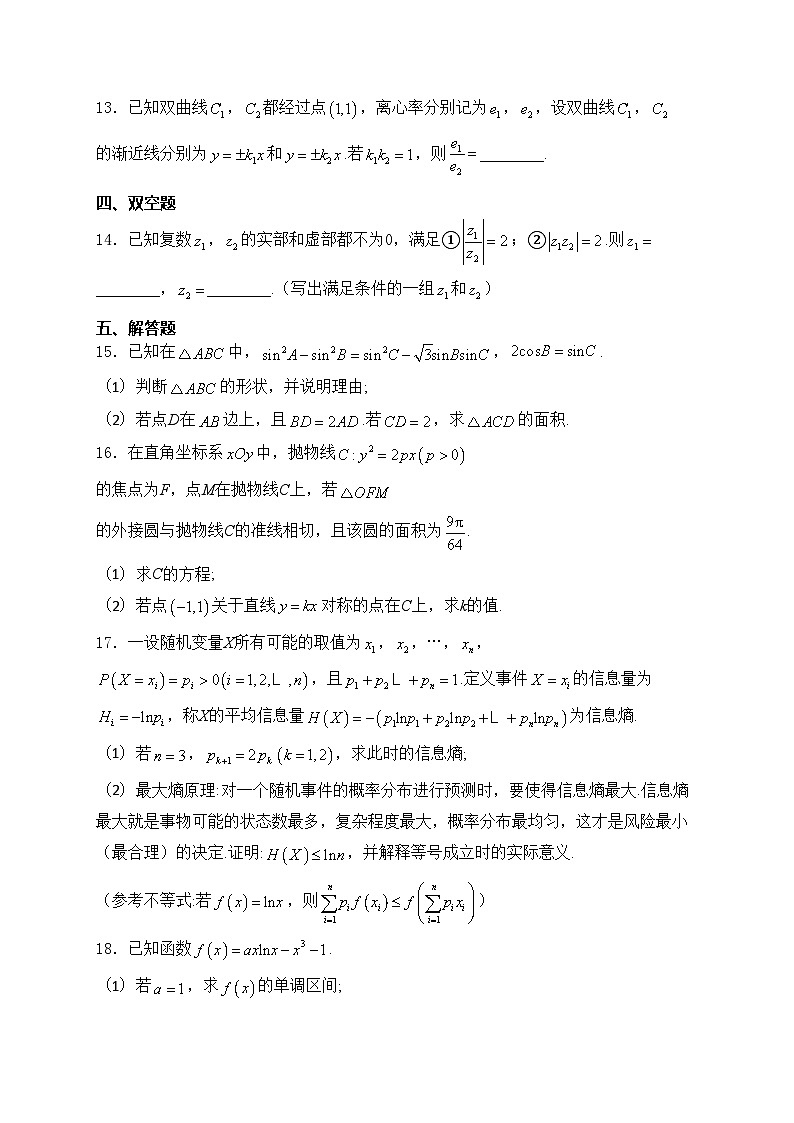 13．已知双曲线C₁，C₂都经过点(1,1)，离心率分别记为e₁，e₂，设双曲线C₁，C₂
的渐近线分别为y=±k₁x和y=±k₂x.若k₁k₂=1，则e₁/e₂=________.
四、双空题
14．已知复数z₁，z₂的实部和虚部都不为0，满足①|z₁/z₂|=2；②|z₁z₂|=2.则z₁=
________，z₂=________.（写出满足条件的一组z₁和z₂）
五、解答题
15．已知在△ABC中，sin²A−sin²B=sin²C−√3sinBsinC，2cosB=sinC.
（1）判断△ABC的形状，并说明理由;
（2）若点D在AB边上，且BD=2AD.若CD=2，求△ACD的面积.
16．在直角坐标系xOy中，抛物线C:y²=2px(p>0)
的焦点为F，点M在抛物线C上，若△OFM
的外接圆与抛物线C的准线相切，且该圆的面积为9π/64.
（1）求C的方程;
（2）若点(−1,1)关于直线y=kx对称的点在C上，求k的值.
17．一设随机变量X所有可能的取值为x₁，x₂,…，xₙ，
P(X=xᵢ)=pᵢ>0(i=1,2,L ,n)，且p₁+p₂L+pₙ=1.定义事件X=xᵢ的信息量为
Hᵢ=−lnpᵢ，称X的平均信息量H(X)=−(p₁lnp₁+p₂lnp₂+L+pₙlnpₙ)为信息熵.
（1）若n=3，pₖ₊₁=2pₖ(k=1,2)，求此时的信息熵;
（2）最大熵原理:对一个随机事件的概率分布进行预测时，要使得信息熵最大.信息熵
最大就是事物可能的状态数最多，复杂程度最大，概率分布最均匀，这才是风险最小
（最合理）的决定.证明:H(X)≤lnn，并解释等号成立时的实际意义.
（参考不等式:若f(x)=lnx，则∑ⁿᵢ₌₁pᵢf(xᵢ)≤f(∑ⁿᵢ₌₁pᵢxᵢ)）
18．已知函数f(x)=axlnx−x³−1.
（1）若a=1，求f(x)的单调区间;